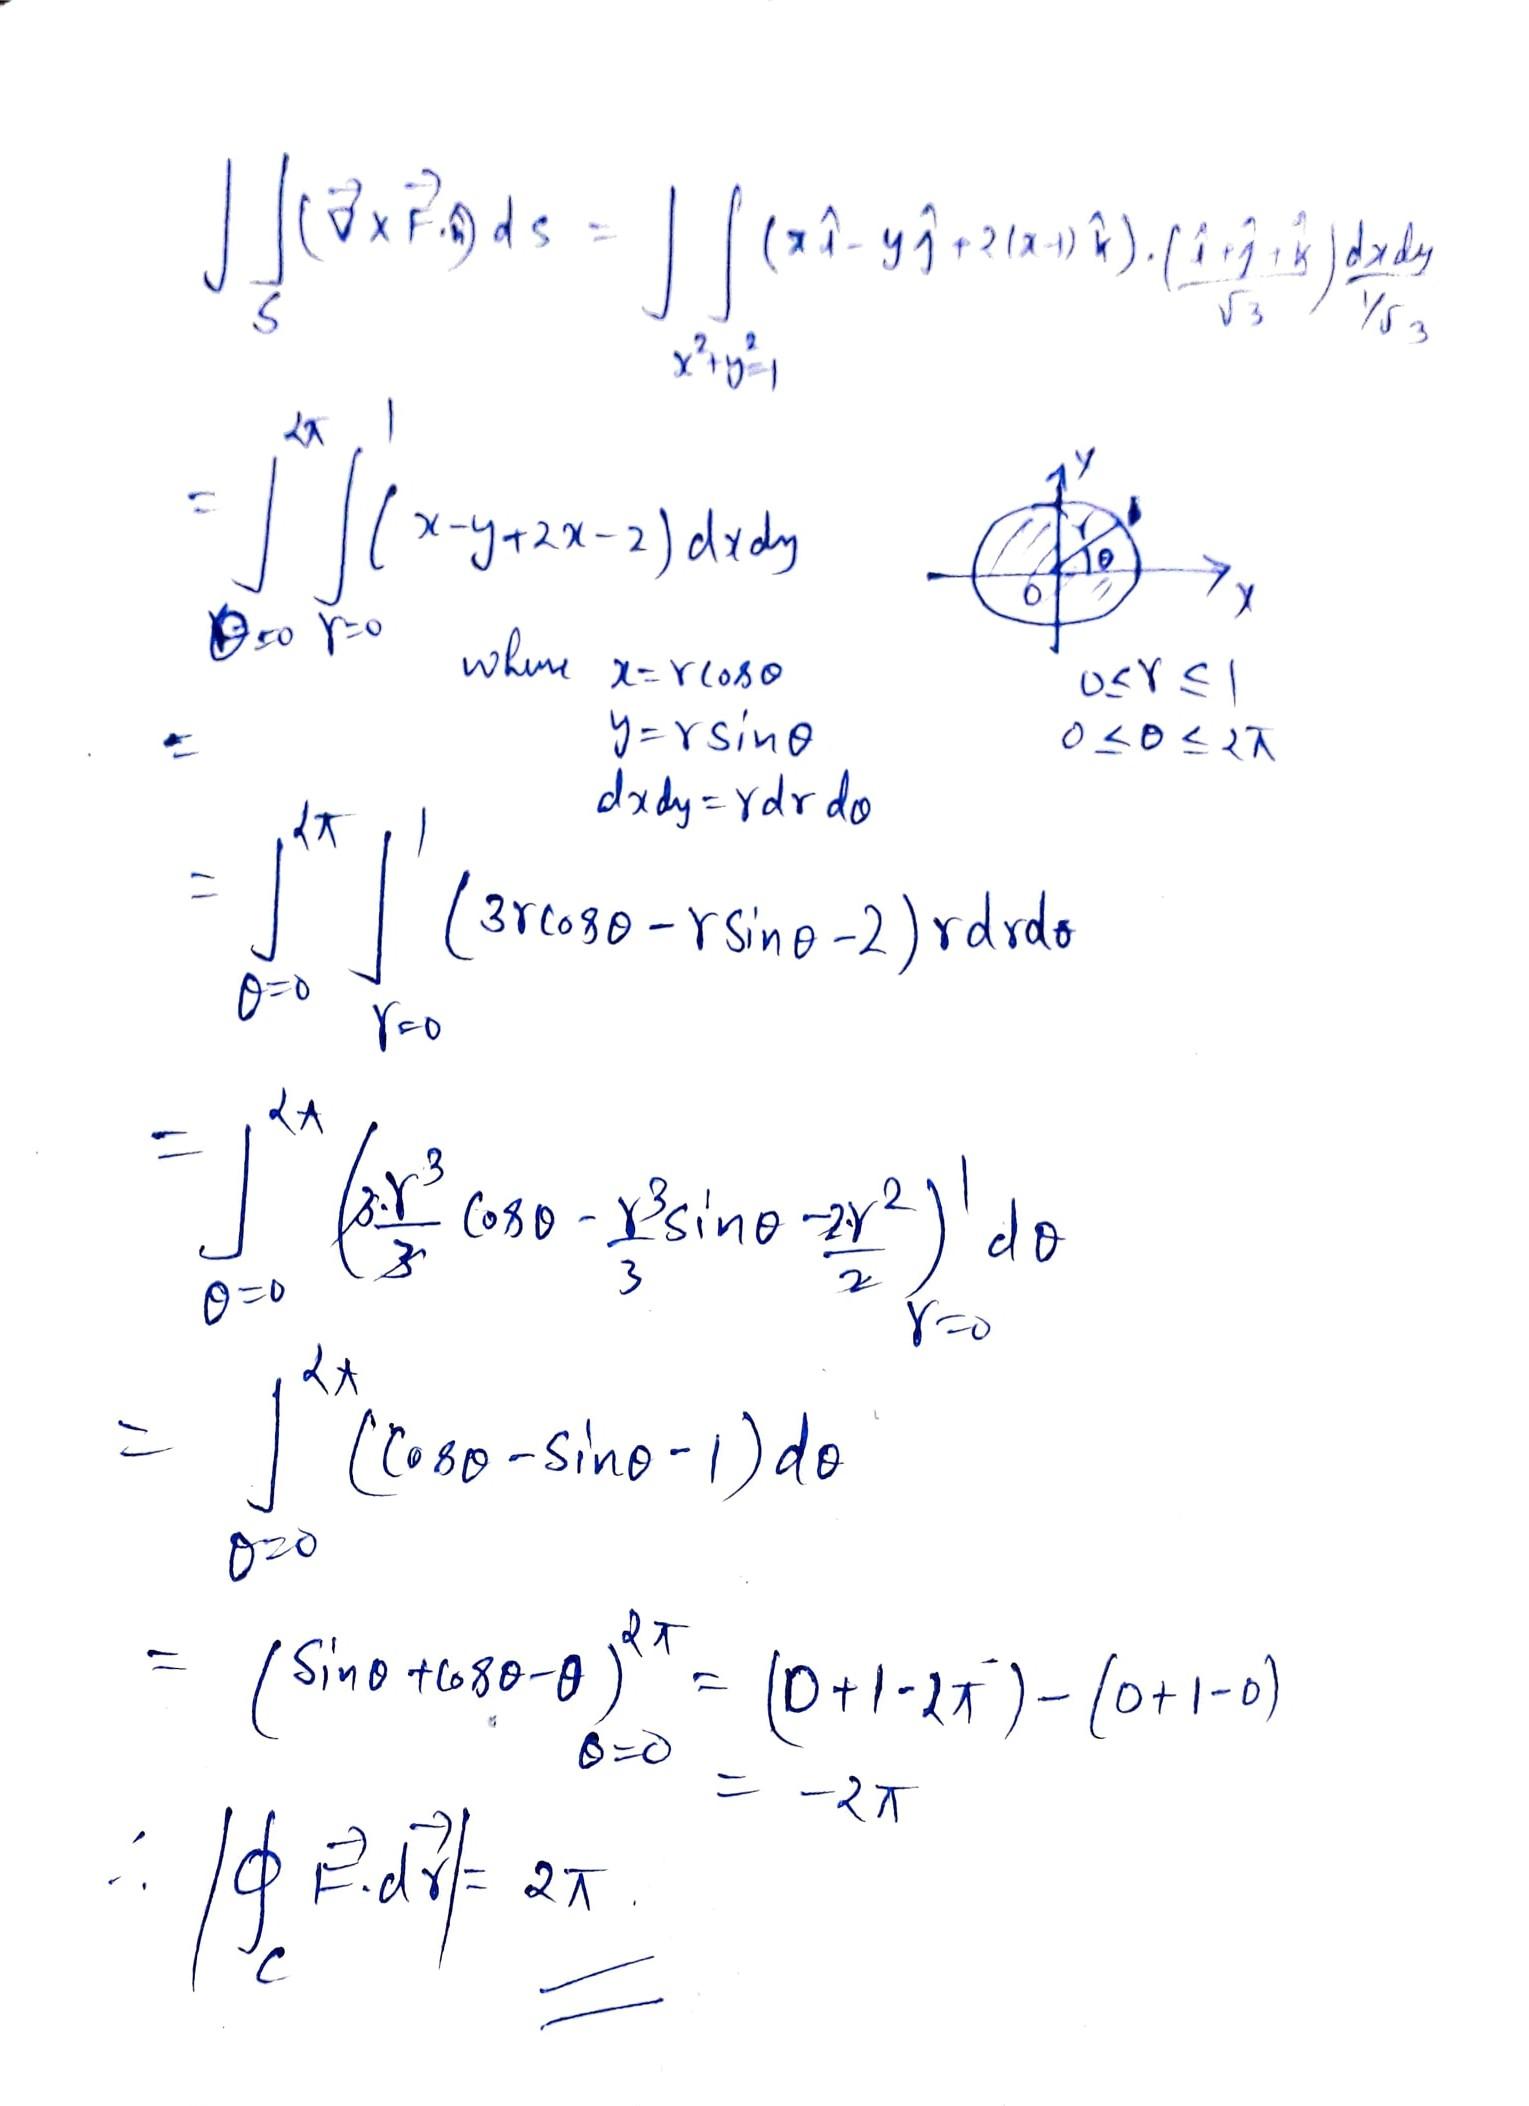 ∫∫_S (∇⃗ × F⃗ . n̂) ds = ∫∫_{x²+y²=1} (x î - y ĵ + 2(x-1) k̂) . (î + ĵ + k̂)/√3 dxdy/(1/√3)
= ∫_{θ=0}^{2π} ∫_{r=0}^{1} (x - y + 2x - 2) dxdy
y
r
θ
0
x
where x = r cosθ
0 ≤ r ≤ 1
= y = r sinθ
0 ≤ θ ≤ 2π
dxdy = r dr dθ
= ∫_{θ=0}^{2π} ∫_{r=0}^{1} (3r cosθ - r sinθ - 2) r dr dθ
= ∫_{θ=0}^{2π} (3.r³/3 cosθ - r³/3 sinθ - 2.r²/2)_{r=0}^{1} dθ
= ∫_{θ=0}^{2π} (cosθ - sinθ - 1) dθ
= (sinθ + cosθ - θ)_{θ=0}^{2π} = (0 + 1 - 2π) - (0 + 1 - 0)
= -2π
∴ |∮_C F⃗ . dr⃗| = 2π.